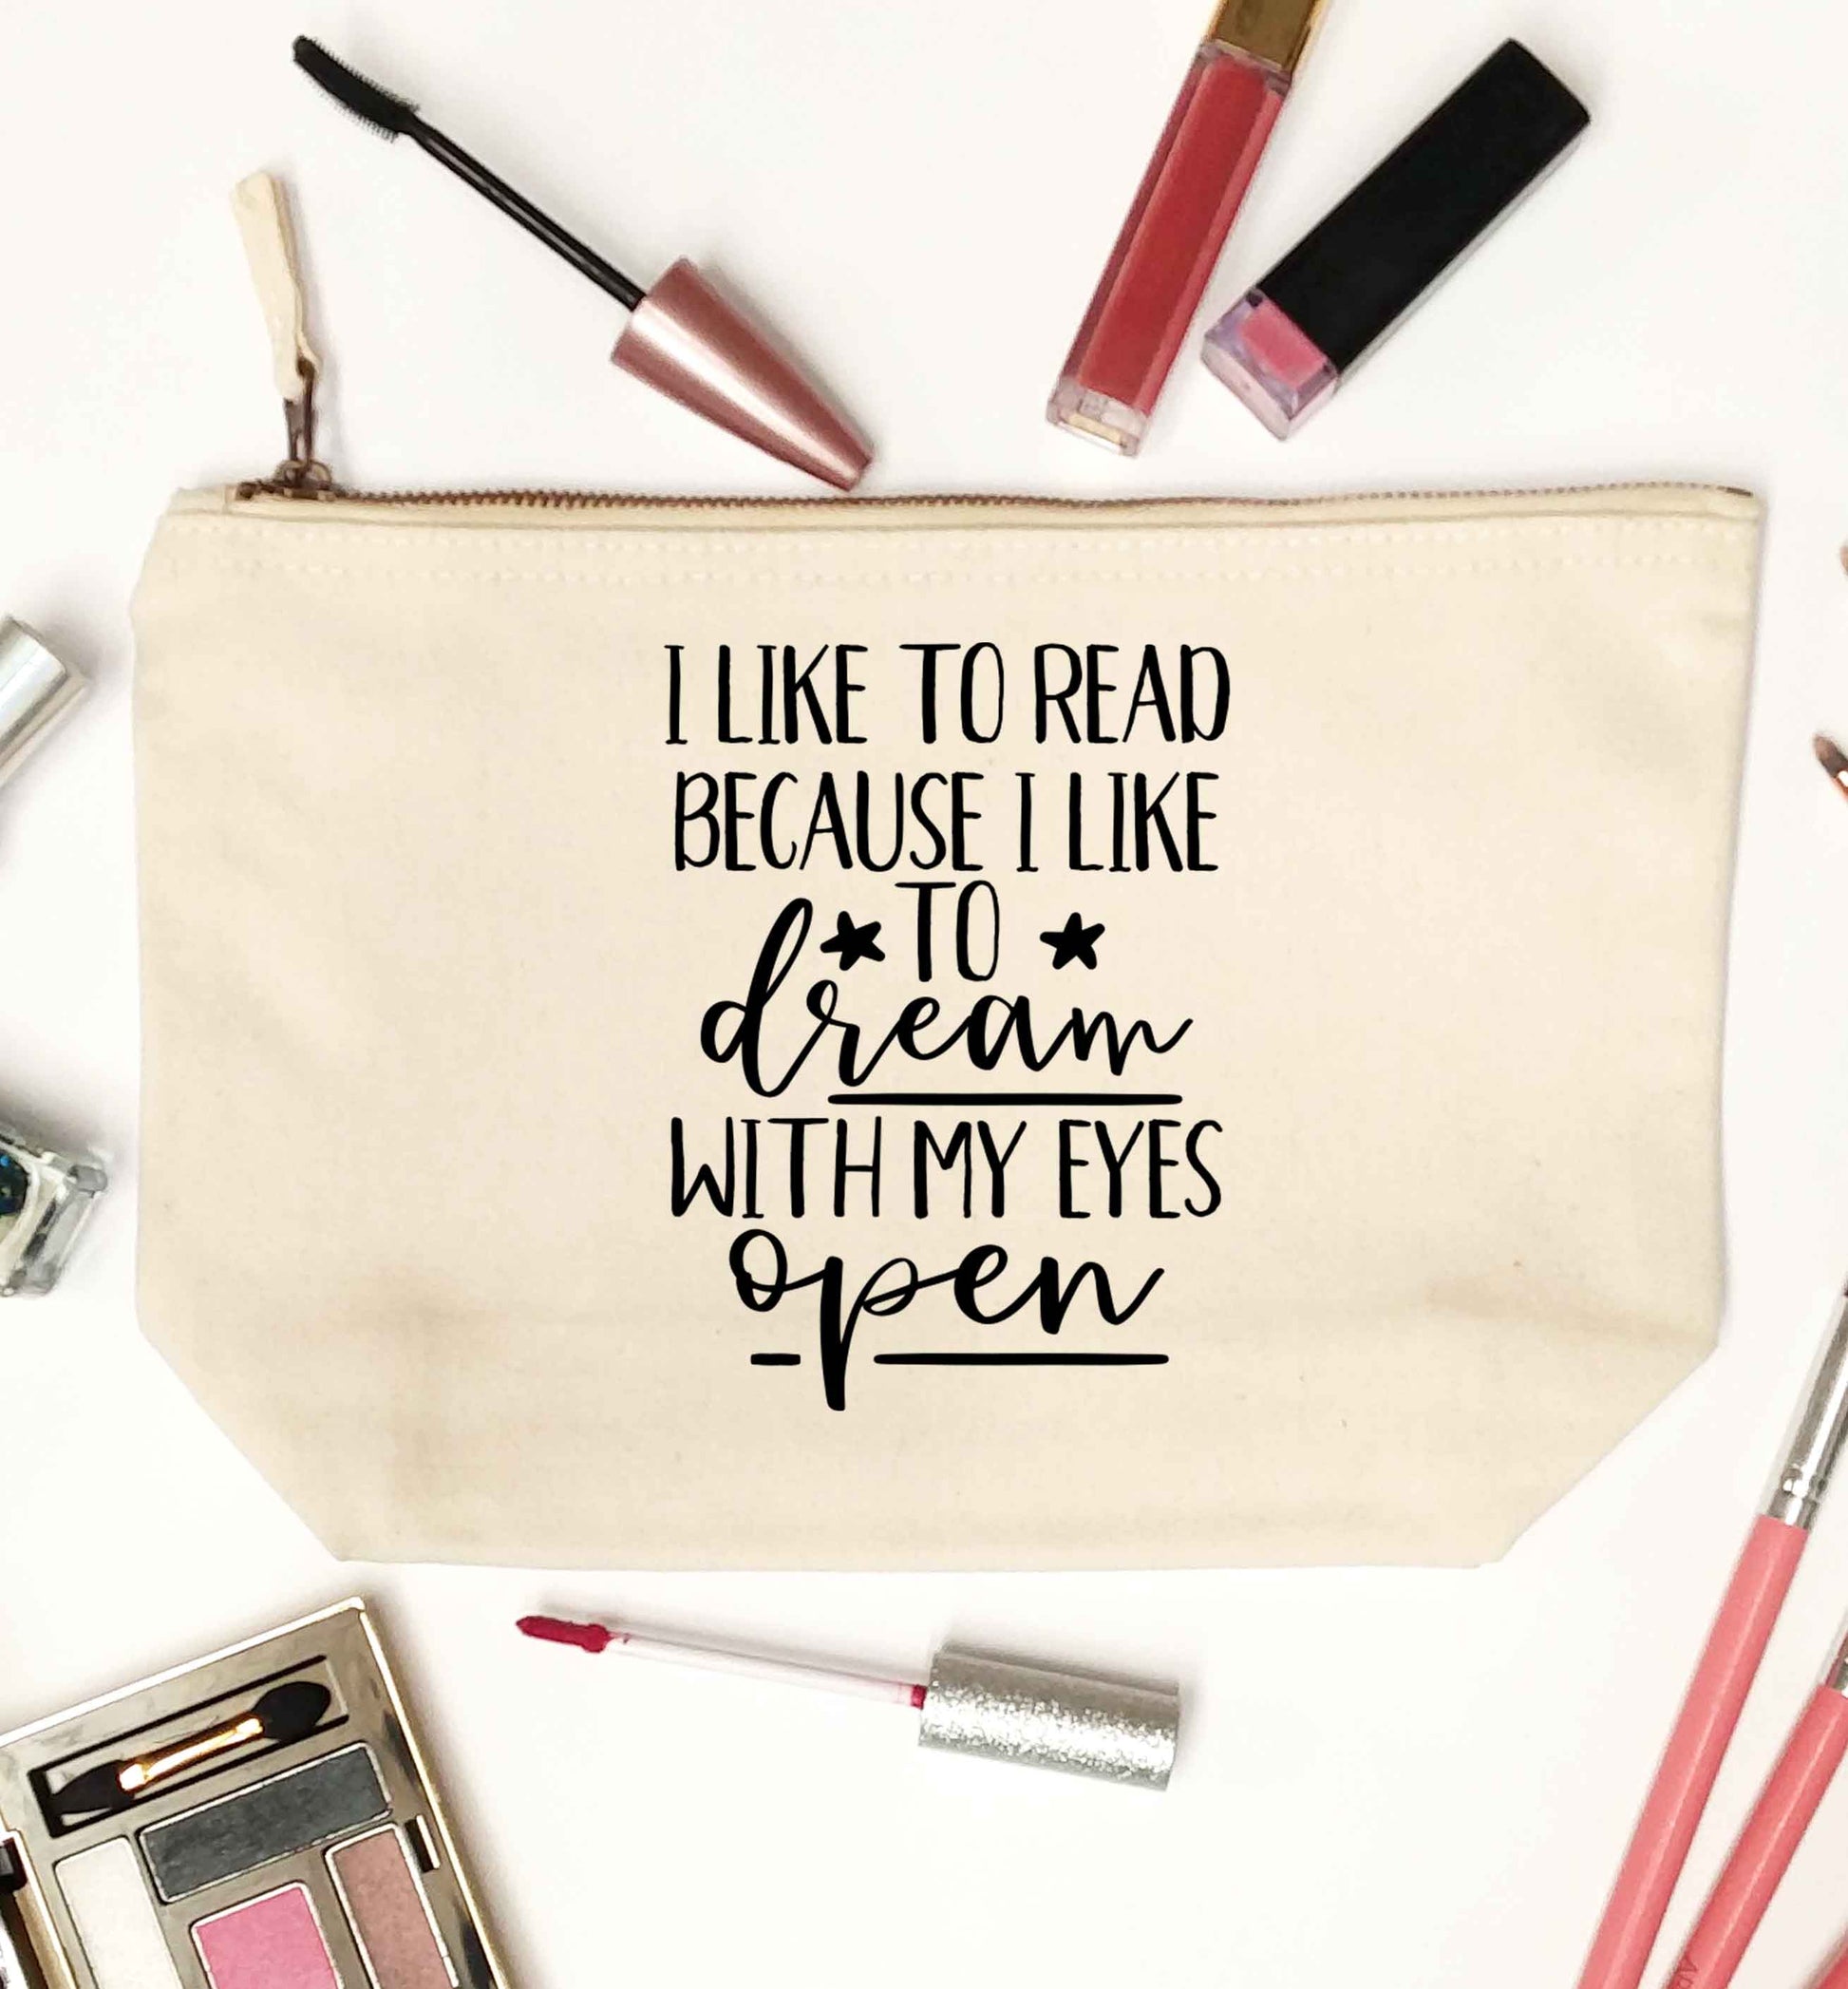 I LIKE TO READ
BECAUSE I LIKE
TO
dream
WITH MY EYES
open